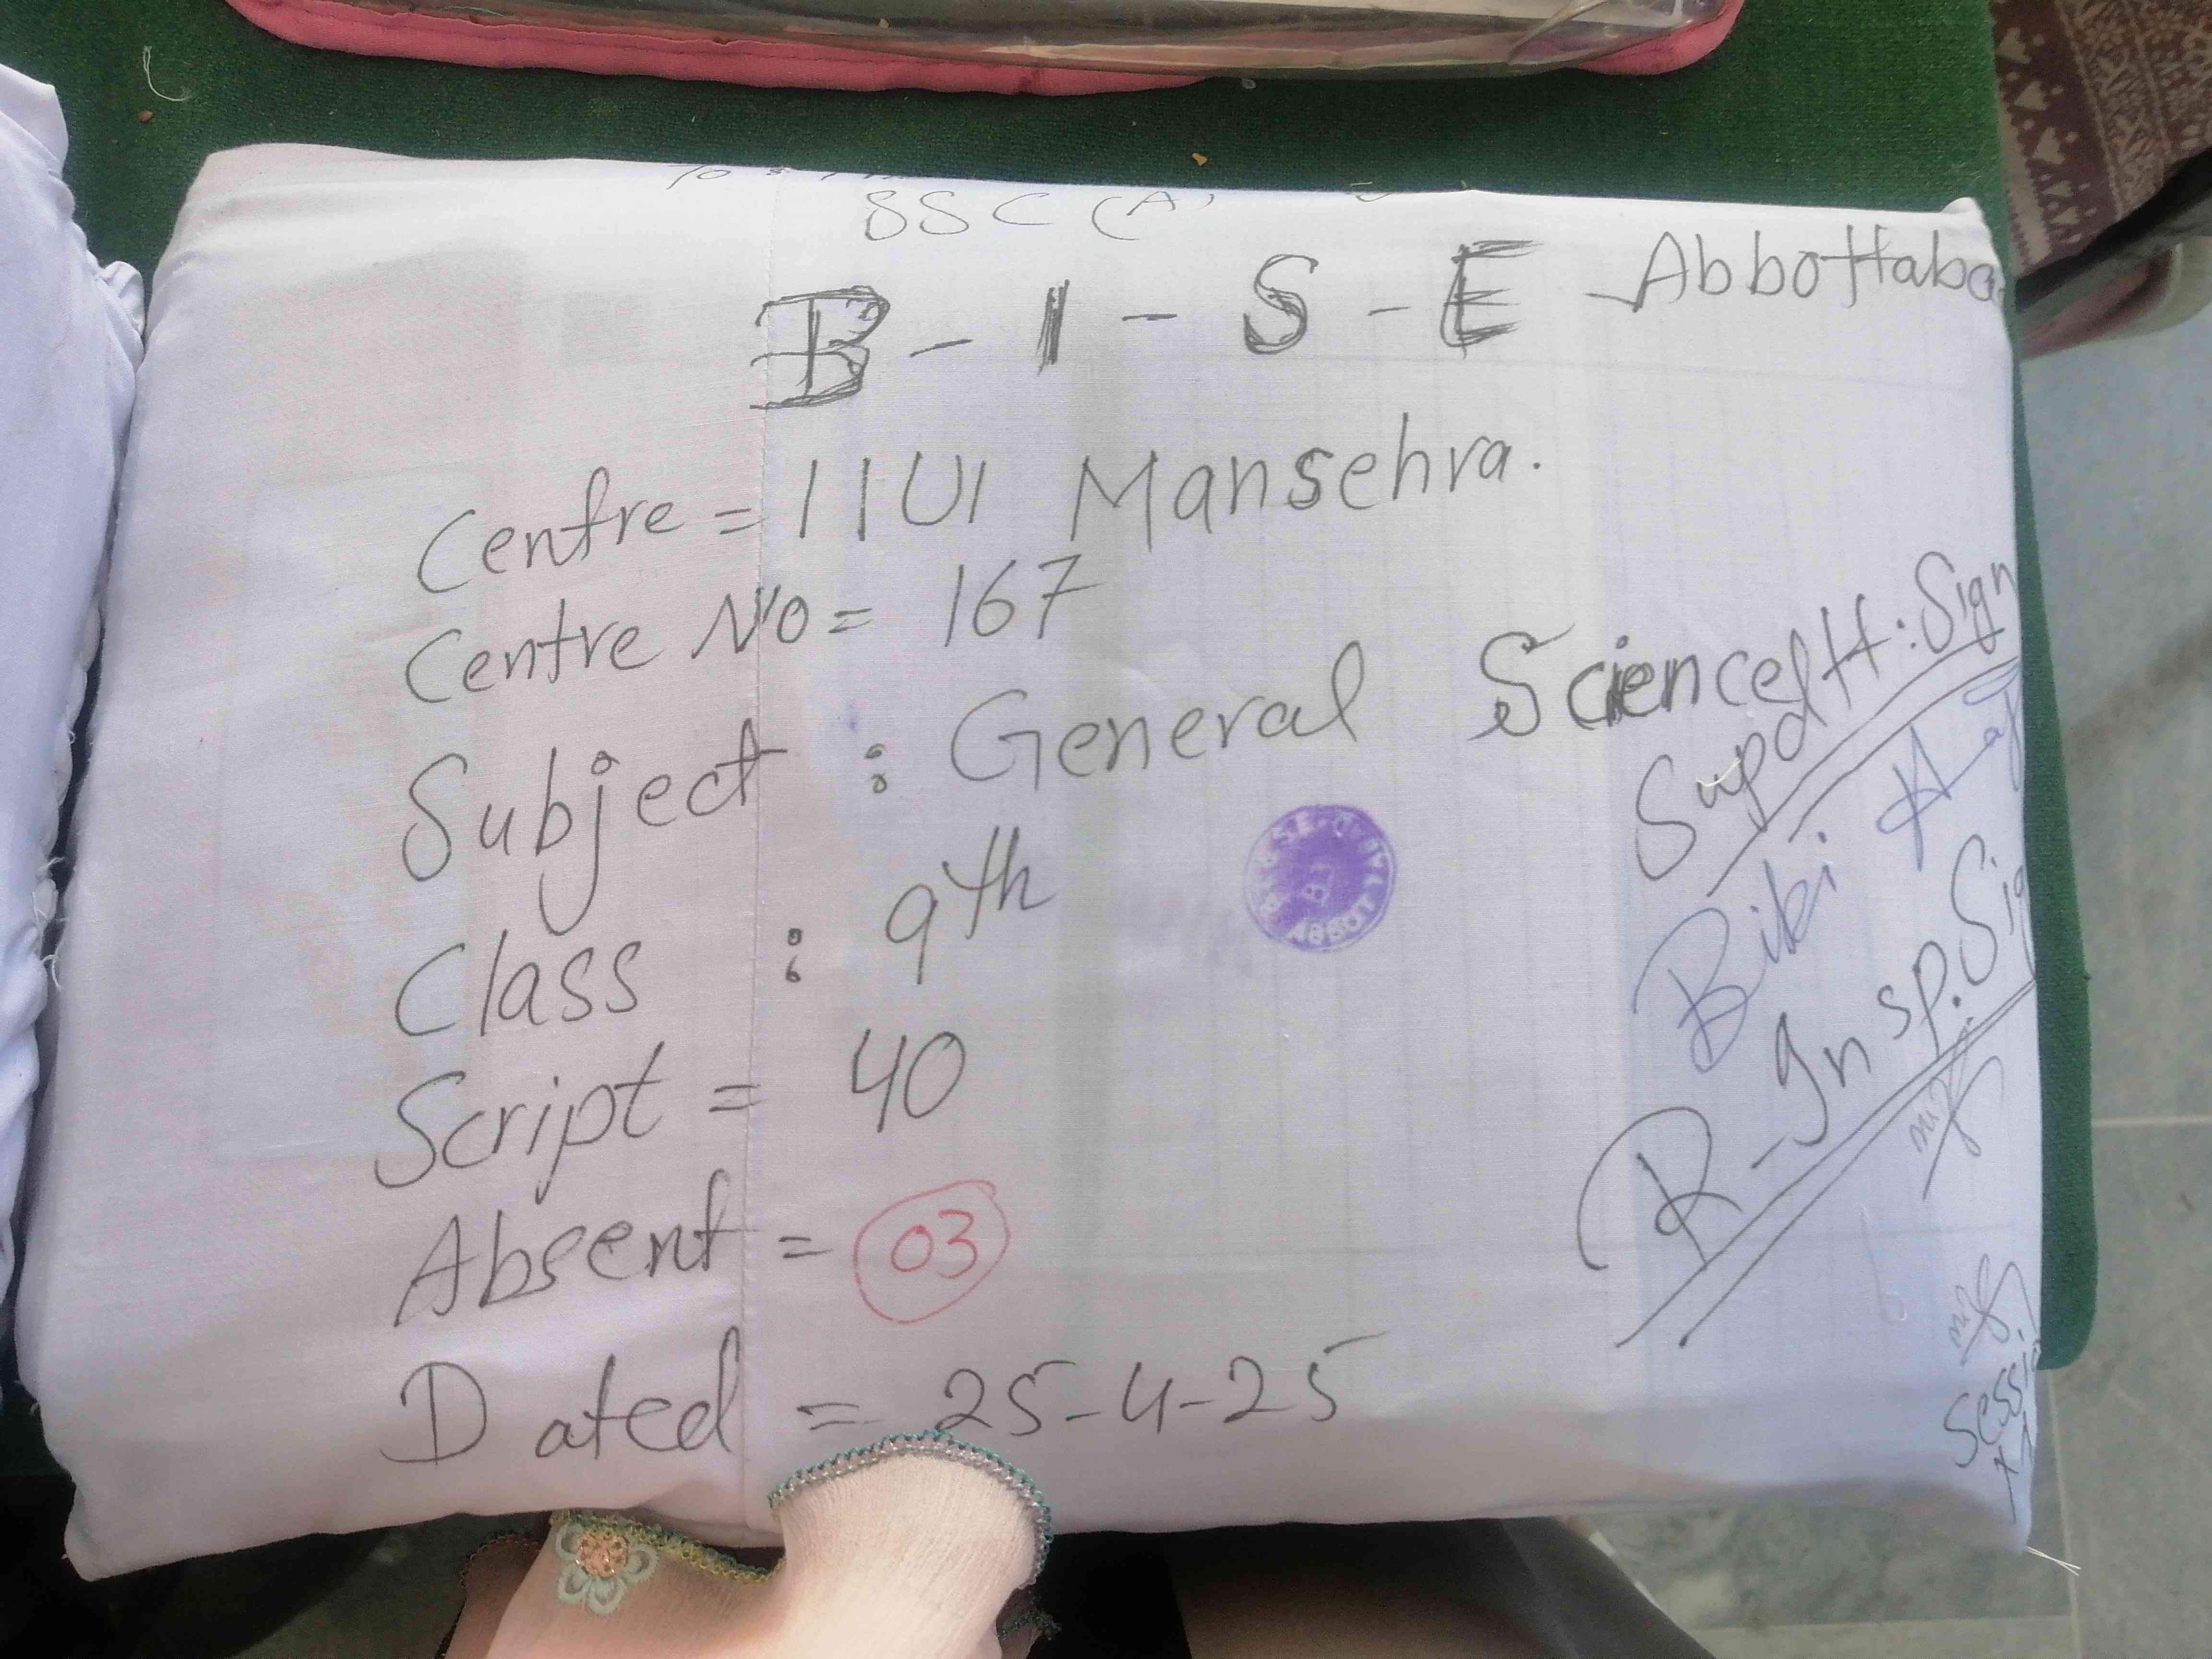 SSC (A)
B-I-S-E-Abbottaba
Centre = IIUI Mansehra.
Centre No = 167
Subject : General Science
Class : 9th
Script = 40
Absent = 03
Dated = 25-4-25
Supdtt: Sign
Bibi
R-Insp. Sig
Sessi